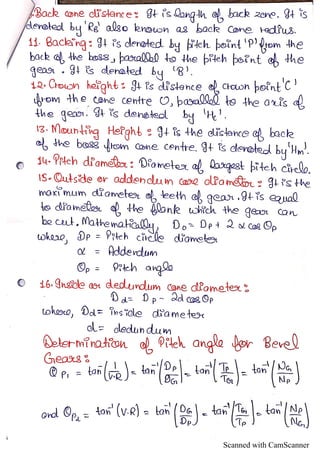 Back cone distance: It is length of back zone. It is
denoted by 'RB' also known as back cone radius.
11. Backing: It is denoted by pitch point 'P' from the
back of the boss, parallel to the pitch point of the
gear. It is denoted by 'B'.
12. Crown height: It is distance of crown point 'C'
from the cone centre O, parallel to the axis of
the gear. It is denoted by 'Hc'.
13. Mounting Height: It is the distance of back
of the boss from cone centre. It is denoted by 'Hm'.
14. Pitch diameter: Diameter of largest pitch circle.
15. Outside or addendum cone diameter: It is the
maximum diameter of teeth of gear. It is equal
to diameter of the blank which the gear can
be cut. Mathematically, Do = Dp + 2 α cos Op
where, Dp = Pitch circle diameter
α = Addendum
Op = Pitch angle
16. Inside or dedundum cone diameter:
Dd = Dp - 2d cos Op
where, Dd = inside diameter
d = dedundum
Determination of Pitch angle for Bevel
Gears:
Θp1 = tan⁻¹(1/V.R) = tan⁻¹(Dp/DG) = tan⁻¹(Tp/TG) = tan⁻¹(NG/Np)
and Θp2 = tan⁻¹(V.R) = tan⁻¹(DG/Dp) = tan⁻¹(TG/Tp) = tan⁻¹(Np/NG)
Scanned with CamScanner